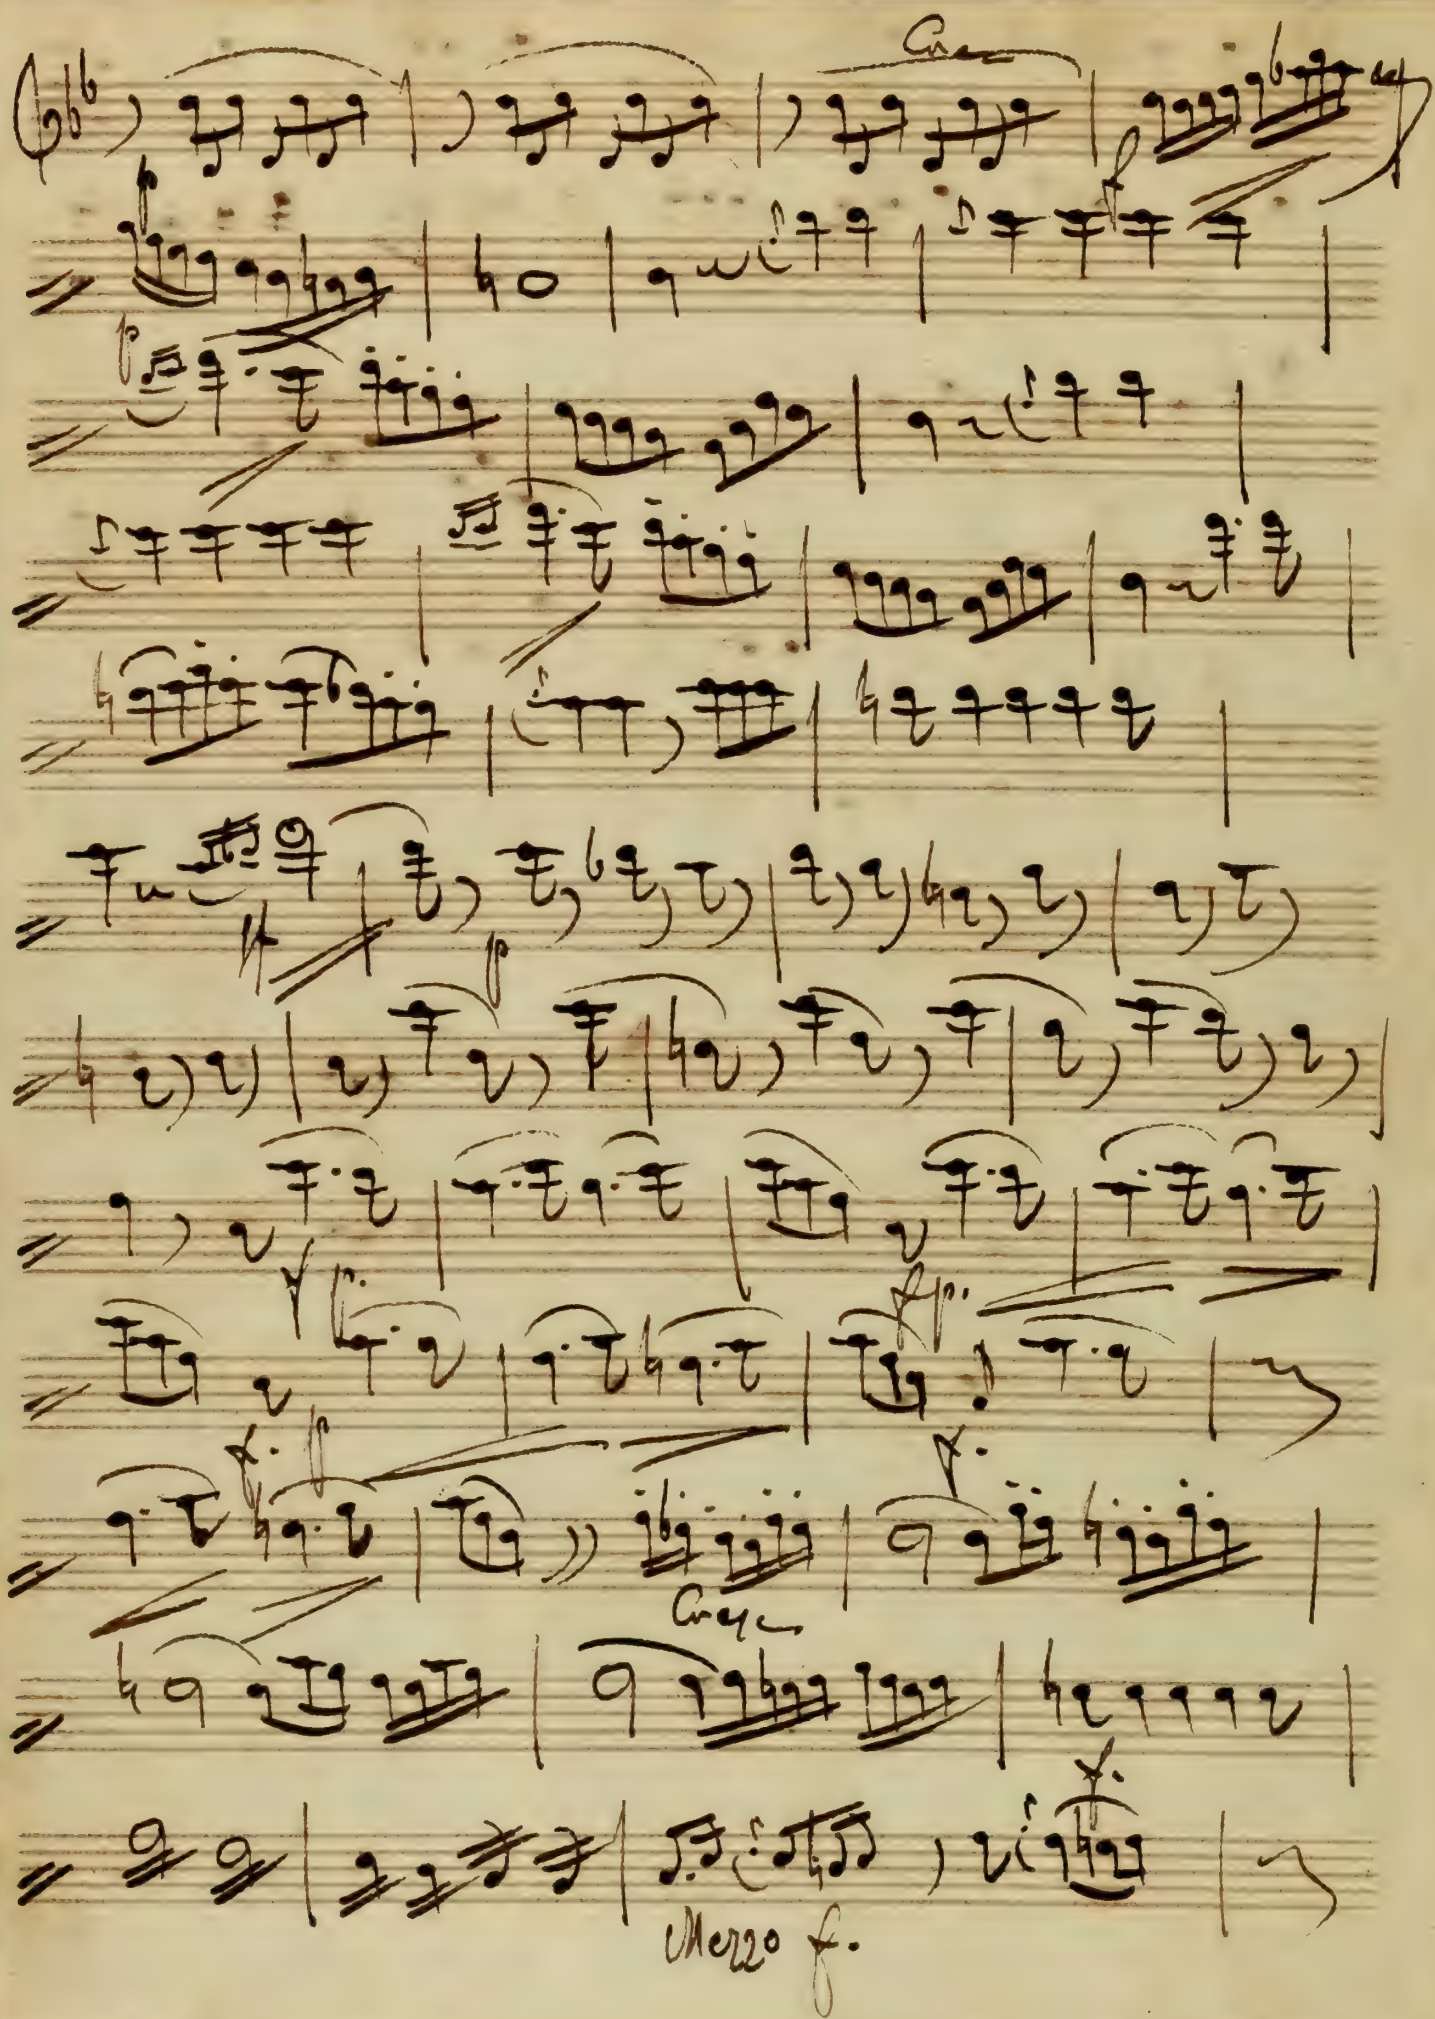 Cres
f
p
p
ff
p
f p.
fp.
f. p
f.
Cresc
f.
Mezzo f.